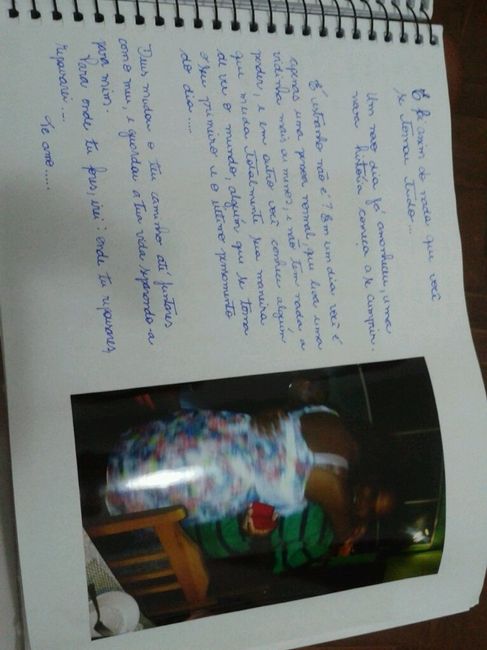 E foi assim do nada que você
se tornou tudo...
Um novo dia já amanheceu, uma
nova história começa a se cumprir.
É estranho não é? Em um dia você é
apenas uma pessoa normal, que leva uma
vidinha mais ou menos, e não tem nada a
perder, e em outro você conhece alguém
que muda totalmente sua maneira
de ver o mundo, alguém que se torna
o seu primeiro e o último pensamento
do dia....
Deus mudou o teu caminho até juntares
com o meu, e guardou a tua vida separando-a
para mim.
Para onde tu fores, irei; onde tu repousares,
repousarei....
Te amo.....